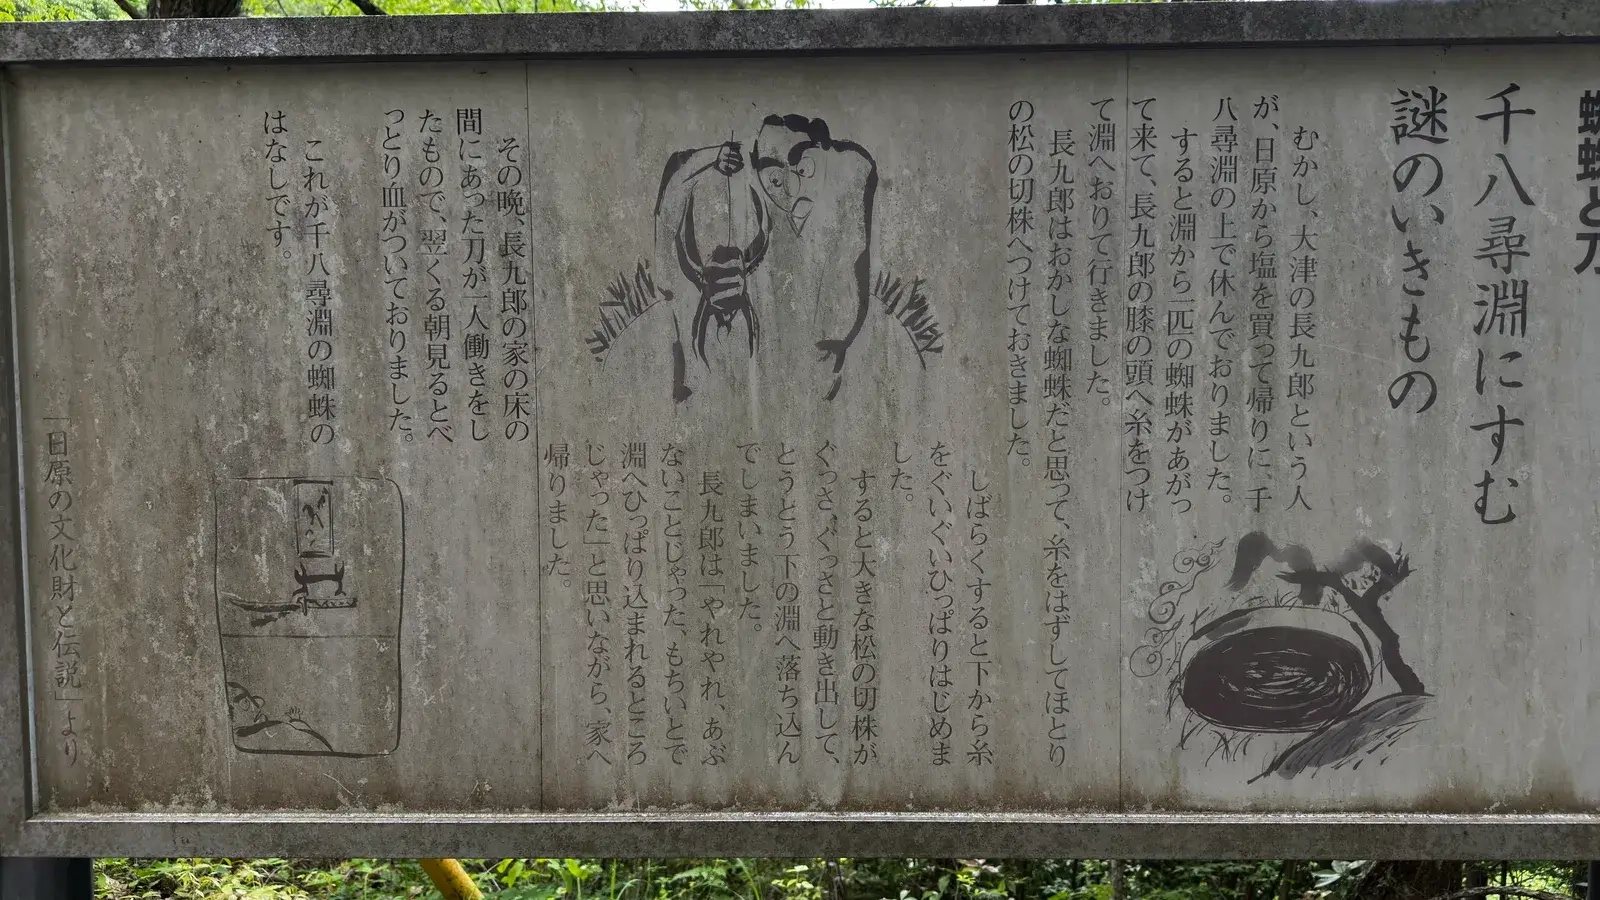 蜘蛛と刀
千八尋淵にすむ
謎のいきもの
むかし、大津の長九郎という人
が、日原から塩を買って帰りに、千
八尋淵の上で休んでおりました。
すると淵から一匹の蜘蛛があがっ
て来て、長九郎の膝の頭へ糸をつけ
て淵へおりて行きました。
長九郎はおかしな蜘蛛だと思って、糸をはずしてほとり
の松の切株へつけておきました。
しばらくすると下から糸
をぐいぐいひっぱりはじめま
した。
すると大きな松の切株が
ぐっさ、ぐっさと動き出して、
とうとう下の淵へ落ち込ん
でしまいました。
長九郎は「やれやれ、あぶ
ないことじゃった、もちいとで
淵へひっぱり込まれるところ
じゃった」と思いながら、家へ
帰りました。
その晩、長九郎の家の床の
間にあった刀が一人働きをし
たもので、翌くる朝見るとべ
っとり血がついておりました。
これが千八尋淵の蜘蛛の
はなしです。
「日原の文化財と伝説」より